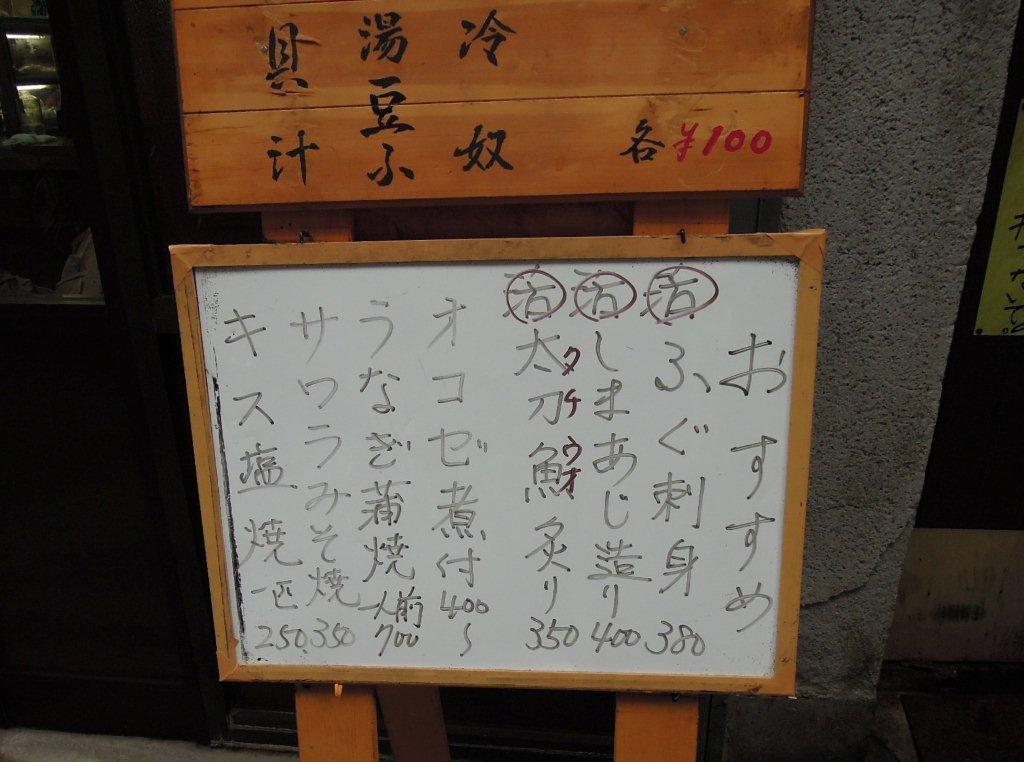 冷奴
湯豆ふ
貝汁
各¥100
おすすめ
活ふぐ刺身 380
活しまあじ造り 400
活太刀魚炙り 350
タチウオ
オコゼ煮付 400~
うなぎ蒲焼一人前 700
サワラみそ焼 350
キス塩焼一匹 250